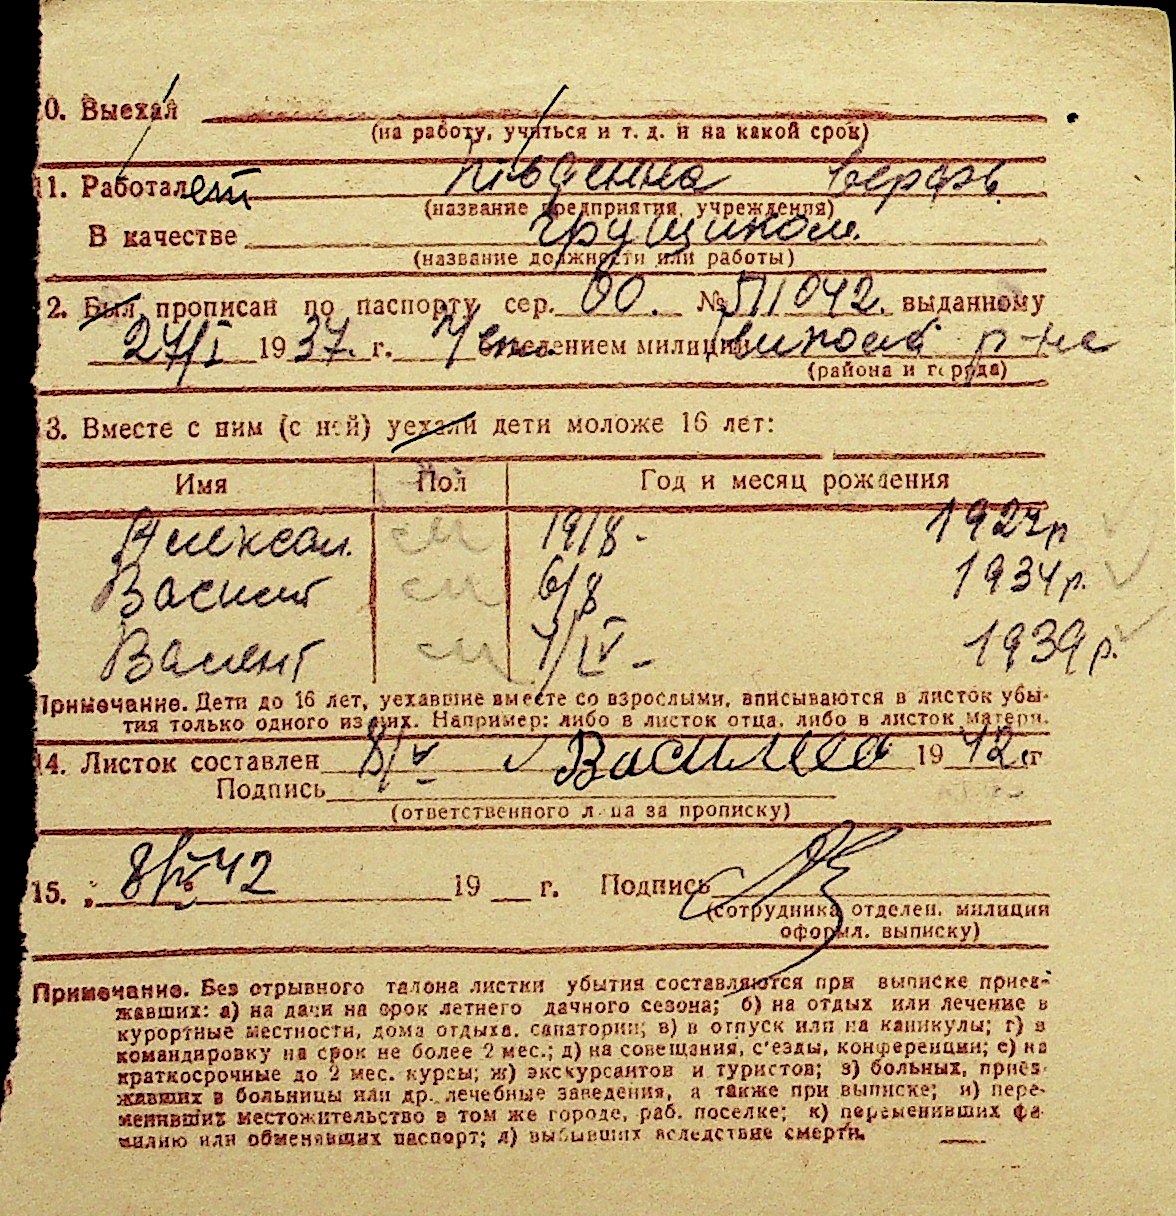 0. Выехал
(на работу, учиться и т. д. и на какой срок)
11. Работает Південна верфь
(название предприятия, учреждения)
В качестве грущиком.
(название должности или работы)
2. Был прописан по паспорту сер. 00. № 511042. выданному
24/I 1937. г. отделением милиции р-на
(района и города)
3. Вместе с ним (с ней) уехали дети моложе 16 лет:
Имя Пол Год и месяц рождения
Александ. см 19/8 - 1927р
Васил см 6/8 1934р.
Валент см 7/IV - 1939р.
Примечание. Дети до 16 лет, уехавшие вместе со взрослыми, вписываются в листок убы-
тия только одного из них. Например: либо в листок отца, либо в листок матери.
14. Листок составлен 8/V 1942 г
Подпись
(ответственного лица за прописку)
15. „ 8/V 42 19 г. Подпись
(сотрудника отделен. милиции
оформл. выписку)
Примечание. Без отрывного талона листки убытия составляются при выписке приез-
жавших: а) на дачи на срок летнего дачного сезона; б) на отдых или лечение в
курортные местности, дома отдыха, санатории; в) в отпуск или на каникулы; г) в
командировку на срок не более 2 мес.; д) на совещания, с'езды, конференции; е) на
краткосрочные до 2 мес. курсы; ж) экскурсантов и туристов; з) больных, приез-
жавших в больницы или др. лечебные заведения, а также при выписке; и) пере-
менивших местожительство в том же городе, раб. поселке; к) переменивших фа-
милию или обменявших паспорт; л) выбывших вследствие смерти.